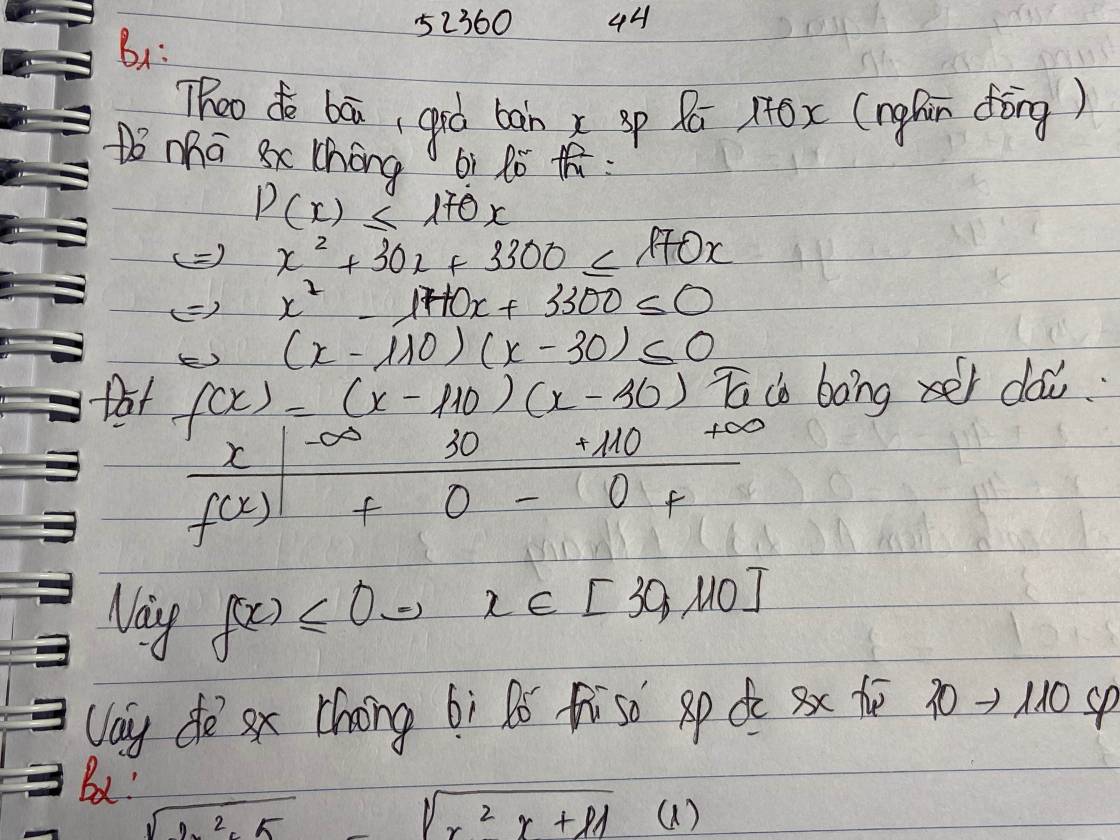 52360 44
B1:
Theo đề bài, giá bán x sp là 170x (nghìn đồng)
Để nhà sx không bị lỗ thì:
P(x) ≤ 170x
<=> x² + 30x + 3300 ≤ 170x
<=> x² - 140x + 3300 ≤ 0
<=> (x - 110)(x - 30) ≤ 0
Đặt f(x) = (x - 110)(x - 30) Ta có bảng xét dấu:
x -∞ 30 +110 +∞
f(x) + 0 - 0 +
Vậy f(x) ≤ 0 => x ∈ [30, 110]
Vậy để sx không bị lỗ thì số sp đc sx từ 30 → 110 sp
B2:
x² - x + 11 (1)